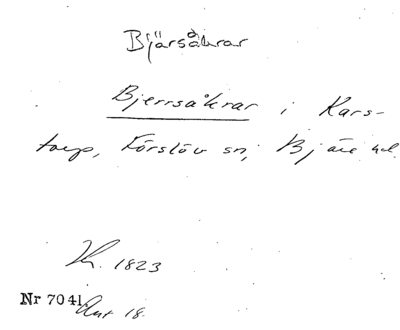 Bjärsåkrar
Bjerrsåkrar i Kars-
torp, Förslöv sn; Bjäre hd.
1823
Nr 7041
Akt 18.